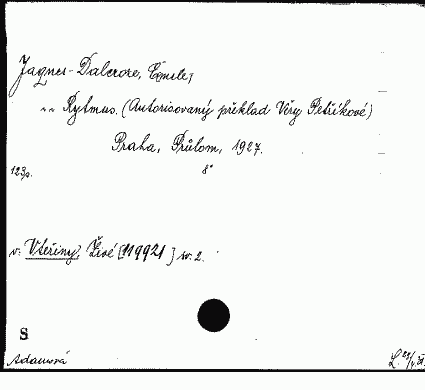 Jaques-Dalcroze, Emile,
„„ Rytmus. (Autorisovaný překlad Věry Petříkové)
Praha, Průlom, 1927.
123p. 8°
v: Vteřiny, Živé [119921] sv. 2.
S
Adamová